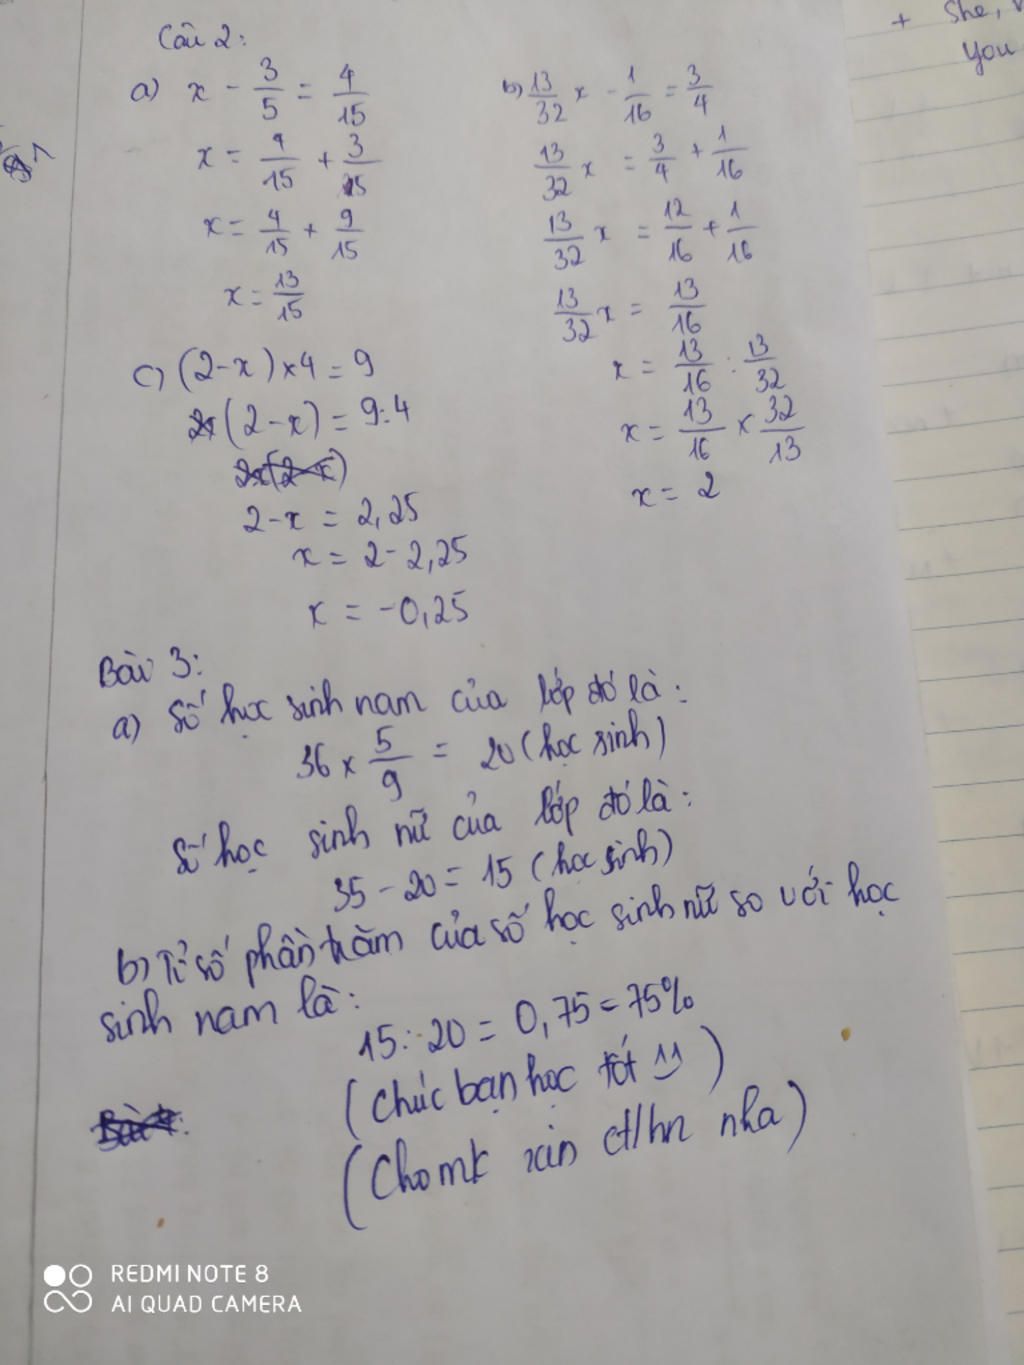 Câu 2:
a) x - 3/5 = 4/15
x = 4/15 + 3/15
x = 4/15 + 9/15
x = 13/15
b) 13/32 x - 1/16 = 3/4
13/32 x = 3/4 + 1/16
13/32 x = 12/16 + 1/16
13/32 x = 13/16
x = 13/16 : 13/32
x = 13/16 x 32/13
x = 2
c) (2-x) x 4 = 9
(2-x) = 9:4
2-x = 2,25
x = 2-2,25
x = -0,25
Bài 3:
a) Số học sinh nam của lớp đó là:
36 x 5/9 = 20 (học sinh)
Số học sinh nữ của lớp đó là:
35 - 20 = 15 (học sinh)
b) Tỉ số phần trăm của số học sinh nữ so với học
sinh nam là:
15 : 20 = 0,75 = 75%
(Chúc bạn học tốt !!)
(Cho mk xin ctlhn nha)
+ She,
You
REDMI NOTE 8
AI QUAD CAMERA